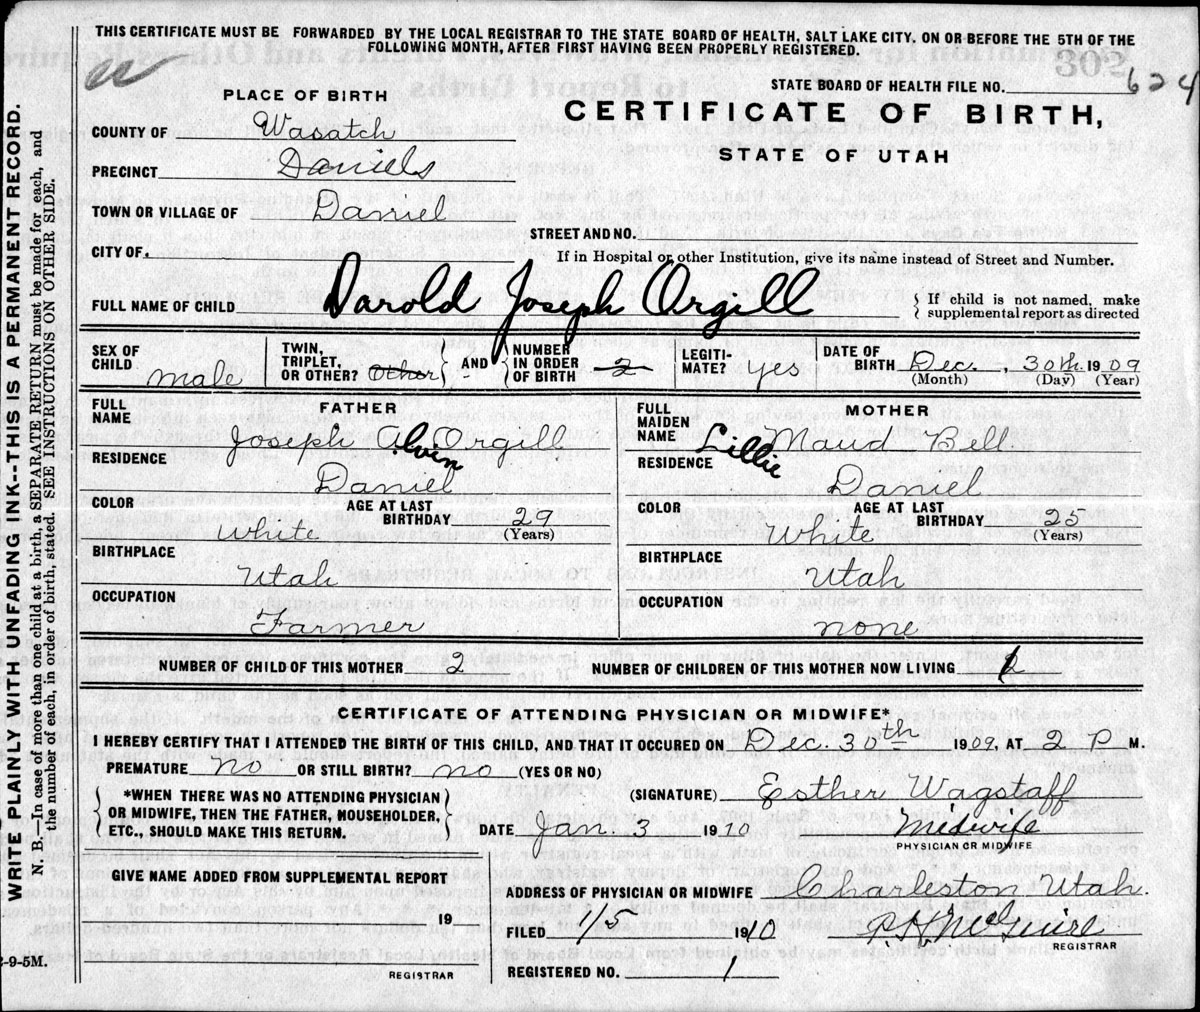 THIS CERTIFICATE MUST BE FORWARDED BY THE LOCAL REGISTRAR TO THE STATE BOARD OF HEALTH, SALT LAKE CITY, ON OR BEFORE THE 5TH OF THE
FOLLOWING MONTH, AFTER FIRST HAVING BEEN PROPERLY REGISTERED.
302
STATE BOARD OF HEALTH FILE NO. 624
PLACE OF BIRTH
CERTIFICATE OF BIRTH,
STATE OF UTAH
COUNTY OF Wasatch
PRECINCT Daniels
TOWN OR VILLAGE OF Daniel
STREET AND NO.
CITY OF.
If in Hospital or other Institution, give its name instead of Street and Number.
FULL NAME OF CHILD Darold Joseph Orgill
{ If child is not named, make
supplemental report as directed
SEX OF CHILD male
TWIN, TRIPLET, OR OTHER? Other } AND { NUMBER IN ORDER OF BIRTH 2
LEGITI-MATE? yes
DATE OF BIRTH Dec. , 30th 1909
(Month) (Day) (Year)
FULL NAME FATHER
Joseph Alvin Orgill
RESIDENCE
Daniel
COLOR White
AGE AT LAST BIRTHDAY 29 (Years)
BIRTHPLACE
Utah
OCCUPATION
Farmer
FULL MAIDEN NAME MOTHER
Lillie Maud Bell
RESIDENCE
Daniel
COLOR White
AGE AT LAST BIRTHDAY 25 (Years)
BIRTHPLACE
Utah
OCCUPATION
none
NUMBER OF CHILD OF THIS MOTHER 2 NUMBER OF CHILDREN OF THIS MOTHER NOW LIVING 2
CERTIFICATE OF ATTENDING PHYSICIAN OR MIDWIFE*
I HEREBY CERTIFY THAT I ATTENDED THE BIRTH OF THIS CHILD, AND THAT IT OCCURED ON Dec. 30th 1909, AT 2 P M.
PREMATURE no OR STILL BIRTH? no (YES OR NO)
{ *WHEN THERE WAS NO ATTENDING PHYSICIAN
OR MIDWIFE, THEN THE FATHER, HOUSEHOLDER,
ETC., SHOULD MAKE THIS RETURN. }
(SIGNATURE) Esther Wagstaff
DATE Jan. 3 1910 Midwife
PHYSICIAN OR MIDWIFE
GIVE NAME ADDED FROM SUPPLEMENTAL REPORT
19
REGISTRAR
ADDRESS OF PHYSICIAN OR MIDWIFE Charleston Utah.
FILED 1/5 1910 P H McGuire
REGISTRAR
REGISTERED NO. 1
WRITE PLAINLY WITH UNFADING INK--THIS IS A PERMANENT RECORD.
N. B.—In case of more than one child at a birth, a SEPARATE RETURN must be made for each, and
the number of each, in order of birth, stated. SEE INSTRUCTIONS ON OTHER SIDE.
-9-5M.